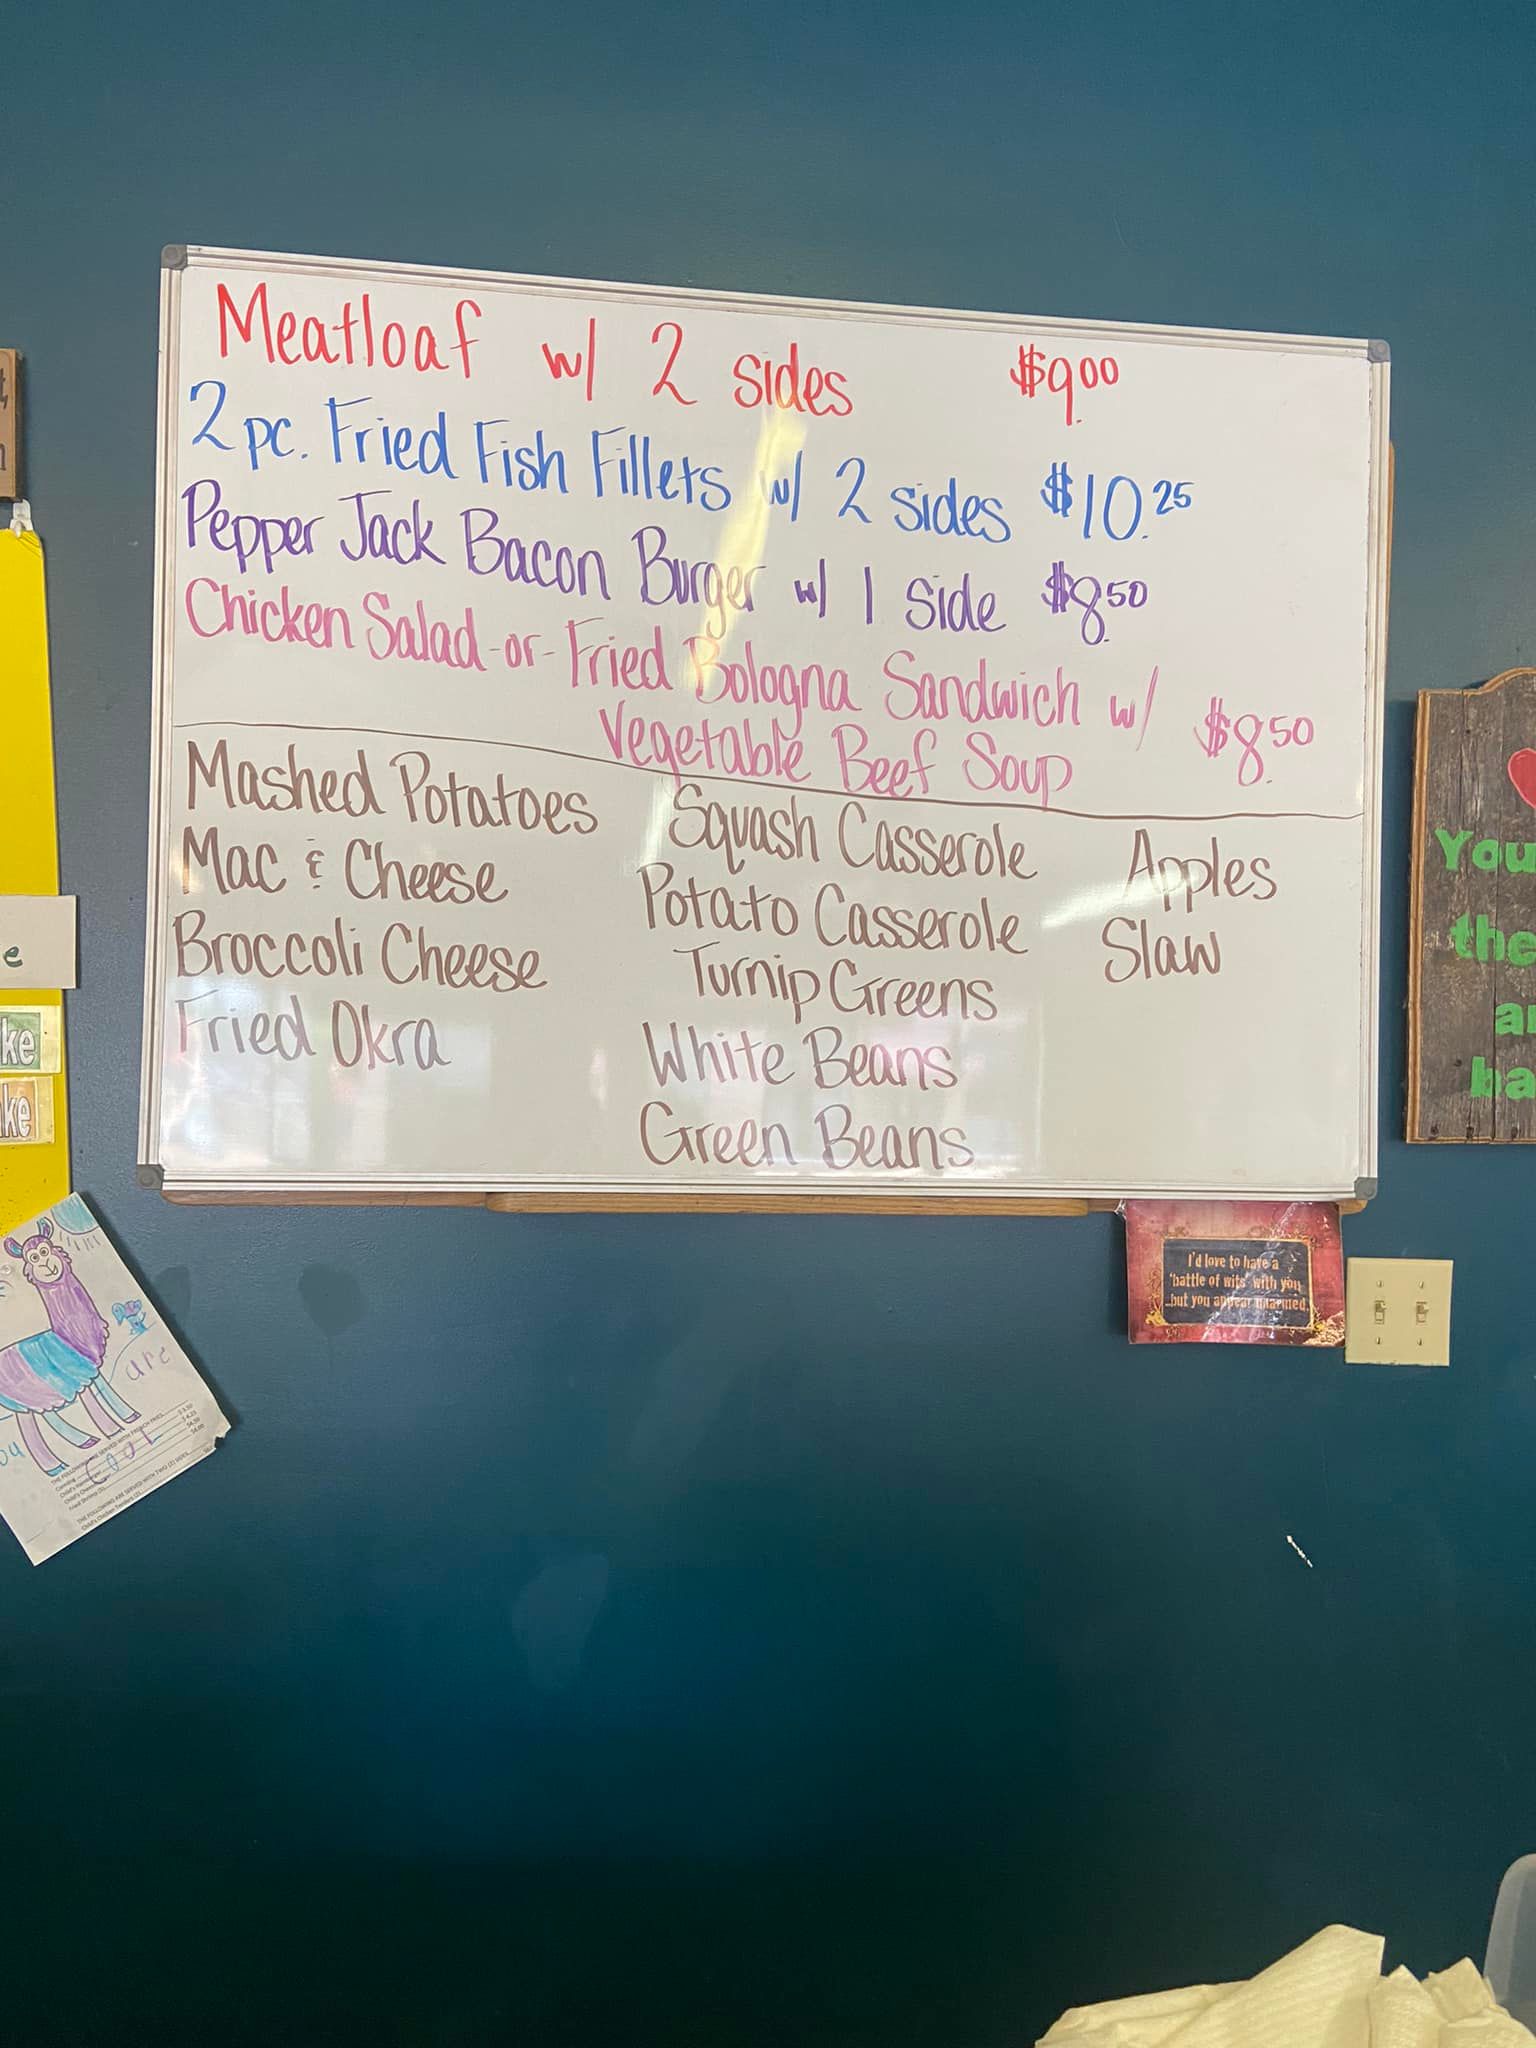 Meatloaf w/ 2 sides $9.00
2 pc. Fried Fish Fillets w/ 2 sides $10.25
Pepper Jack Bacon Burger w/ 1 side $8.50
Chicken Salad -or- Fried Bologna Sandwich w/
Vegetable Beef Soup $8.50
Mashed Potatoes
Mac & Cheese
Broccoli Cheese
Fried Okra
Squash Casserole
Potato Casserole
Turnip Greens
White Beans
Green Beans
Apples
Slaw
e
ke
ke
You
the
a
ba
I'd love to have a
'battle of wits' with you
...but you appear unarmed.
are
COOL
THE FOLLOWING ARE SERVED WITH FRENCH FRIES
THE FOLLOWING ARE SERVED WITH TWO (2) SIDES